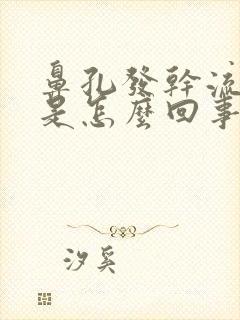 鼻孔發幹流
是怎麼回事
汐奚